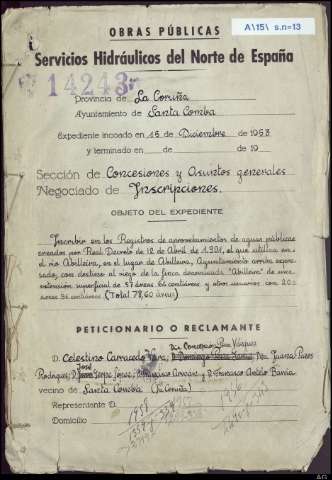 A\15\ s.n=13
OBRAS PÚBLICAS
Servicios Hidráulicos del Norte de España
14243
Provincia de La Coruña
Ayuntamiento de Santa Comba
Expediente incoado en 15 de Diciembre de 1953
y terminado en de de 19
Sección de Concesiones y Asuntos generales
Negociado de Inscripciones.
OBJETO DEL EXPEDIENTE
Inscribir en los Registros de aprovechamientos de aguas públicas
creados por Real Decreto de 12 de Abril de 1.901, el que utiliza en
el río Abilleira, en el lugar de Abilleira, Ayuntamiento arriba expre-
sado, con destino al riego de la finca denominada "Abilleira" de una
extensión superficial de 57 áreas, 64 centiáreas y otros usuarios con 20
áreas 96 centiáreas (Total 78,60 áreas)
PETICIONARIO O RECLAMANTE
Dña Concepción Vázquez
D. Celestino Carracedo Domingo Juana
José
Rodríguez; D. López; Francisco y D. Francisco Antelo Barria
vecino de Santa Comba (La Coruña)
Representante D.
Domicilio
1958
1956